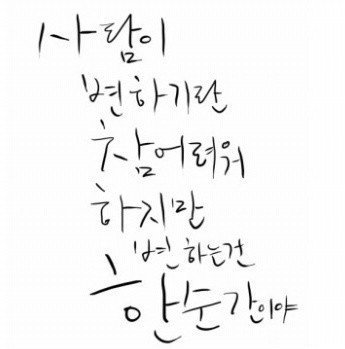 사람이
변하기란
참어려워
하지만
변하는건
한순간이야